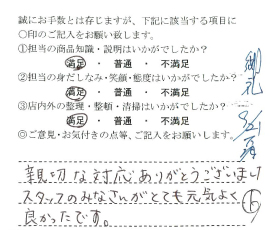 誠にお手数とは存じますが、下記に該当する項目に
○印のご記入をお願い致します。
①担当の商品知識・説明はいかがでしたか？
満足 ・ 普通 ・ 不満足
②担当の身だしなみ・笑顔・態度はいかがでしたか？
満足 ・ 普通 ・ 不満足
③店内外の整理・整頓・清掃はいかがでしたか？
満足 ・ 普通 ・ 不満足
◎ご意見・お気付きの点等、ご記入をお願いします。
親切な対応ありがとうございまい
スタッフのみなさんがとても元気よく
良かったです。